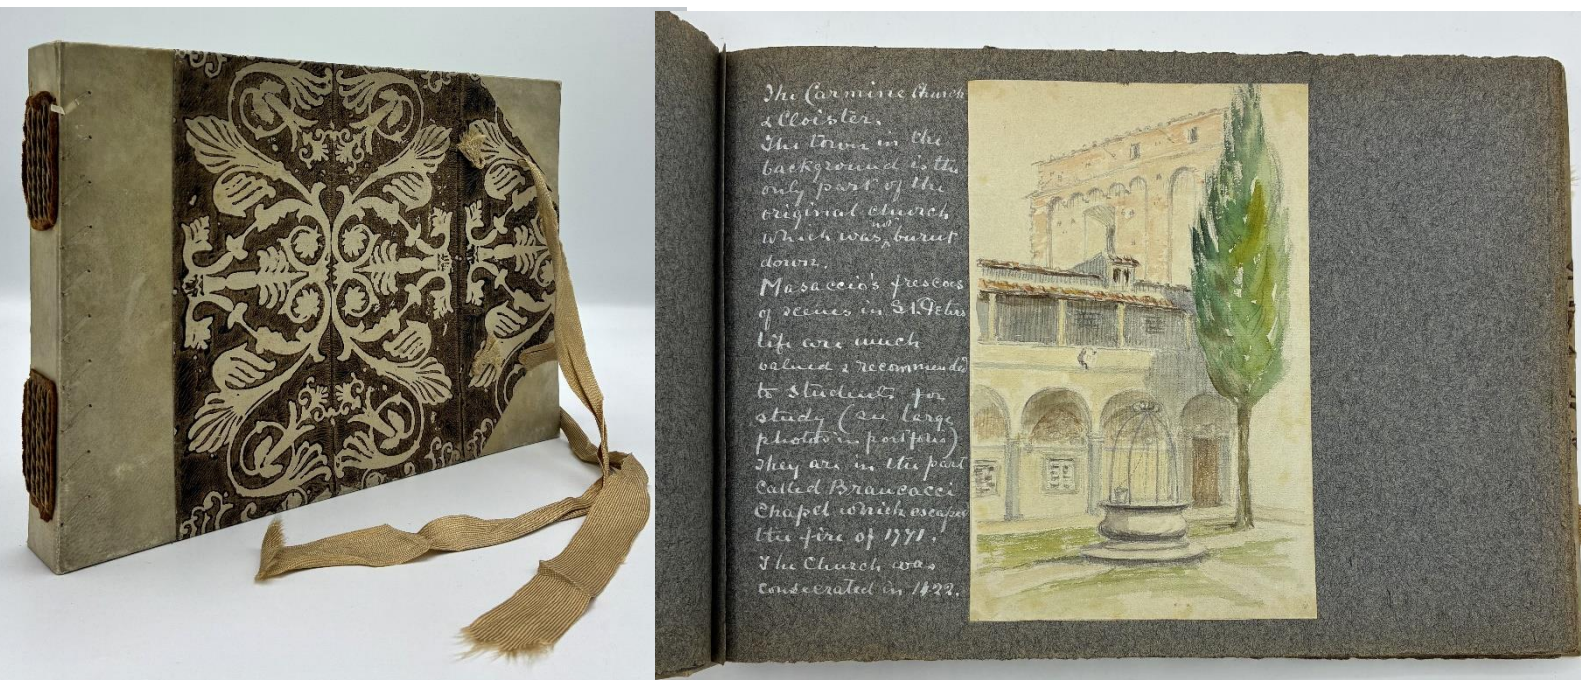 The Carmine Church
& Cloister.
The tower in the
background is the
only part of the
original church
which was not burnt
down.
Masaccio's frescoes
of scenes in St. Peters
life are much
valued & recommended
to students for
study (see large
photos in portfolio)
They are in the part
called Brancacci
Chapel which escaped
the fire of 1771.
The Church was
consecrated in 1422.